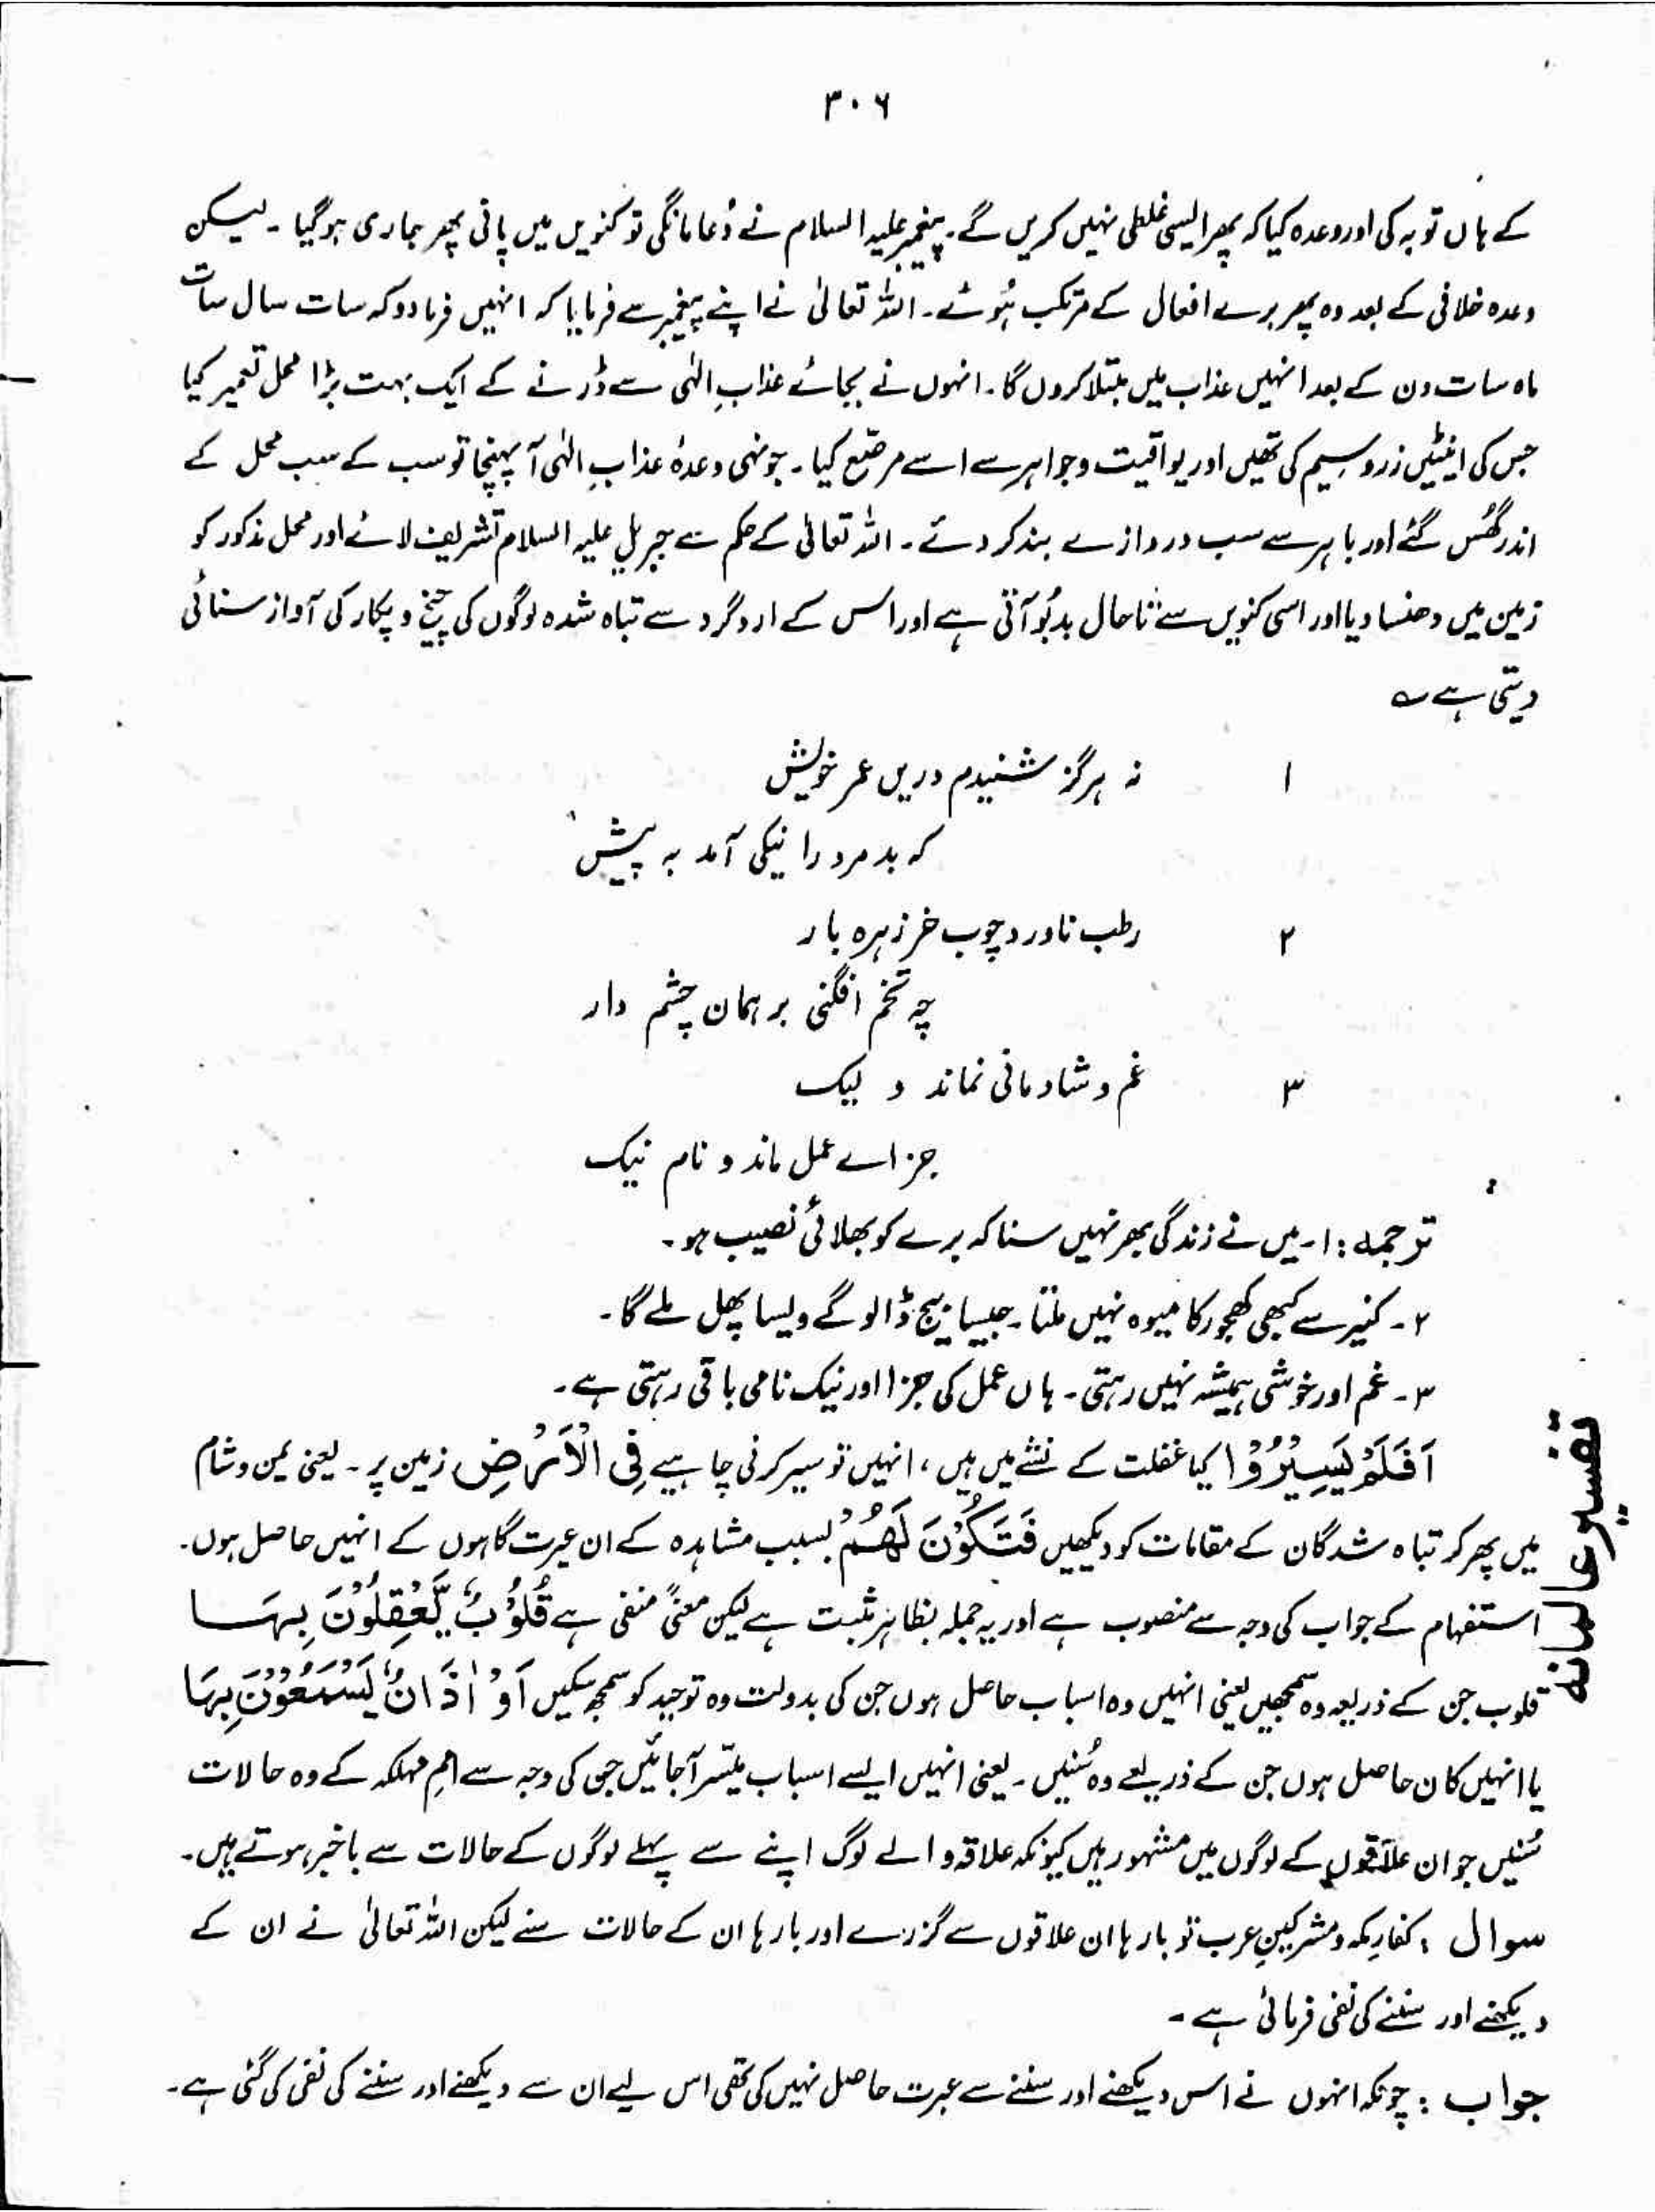 ۳۰۶
کے ہاں توبہ کی اور وعدہ کیا کہ پھر ایسی غلطی نہیں کریں گے۔ پیغمبر علیہ السلام نے دُعا مانگی تو کنویں میں پانی پھر جاری ہو گیا۔ لیکن
وعدہ خلافی کے بعد وہ پھر برے افعال کے مرتکب ہُوئے۔ اللہ تعالیٰ نے اپنے پیغمبر سے فرمایا کہ انہیں فرما دو کہ سات سال سات
ماہ سات دن کے بعد انہیں عذاب میں مبتلا کروں گا۔ انہوں نے بجائے عذابِ الٰہی سے ڈرنے کے ایک بہت بڑا محل تعمیر کیا
جس کی اینٹیں زر و سیم کی تھیں اور یواقیت و جواہر سے اسے مرصّع کیا۔ جونہی وعدۂ عذابِ الٰہی آ پہنچا تو سب کے سب محل کے
اندر گھُس گئے اور باہر سے سب دروازے بند کر دئے۔ اللہ تعالیٰ کے حکم سے جبریل علیہ السلام تشریف لائے اور محل مذکور کو
زمین میں دھنسا دیا اور اسی کنویں سے تاحال بدبُو آتی ہے اور اس کے اردگرد سے تباہ شدہ لوگوں کی چیخ و پکار کی آواز سنائی
دیتی ہے ؎
۱ نہ ہرگز شنیدم دریں عمر خویش
کہ بد مرد را نیکی آمد بہ پیش
۲ رطب ناورد چوب خر زہرہ بار
چہ تخم افگنی بر ہماں چشم دار
۳ غم و شادمانی نماند و لیک
جزاے عمل ماند و نام نیک
ترجمہ: ۱۔ میں نے زندگی بھر نہیں سنا کہ برے کو بھلائی نصیب ہو۔
۲۔ کنیر سے کبھی کھجور کا میوہ نہیں ملتا۔ جیسا بیج ڈالو گے ویسا پھل ملے گا۔
۳۔ غم اور خوشی ہمیشہ نہیں رہتی۔ ہاں عمل کی جزا اور نیک نامی باقی رہتی ہے۔
تفسیر عالمانہ
اَفَلَمْ یَسِیْرُوْا کیا غفلت کے نشے میں ہیں، انہیں تو سیر کرنی چاہیے فِی الْاَرْضِ زمین پر۔ یعنی یمن و شام
میں پھر کر تباہ شدگان کے مقامات کو دیکھیں فَتَکُوْنَ لَھُمْ بسبب مشاہدہ کے ان عبرت گاہوں کے انہیں حاصل ہوں۔
استفہام کے جواب کی وجہ سے منصوب ہے اور یہ جملہ بظاہر مثبت ہے لیکن معنیً منفی ہے قُلُوْبٌ یَّعْقِلُوْنَ بِھَا
قلوب جن کے ذریعہ وہ سمجھیں یعنی انہیں وہ اسباب حاصل ہوں جن کی بدولت وہ توحید کو سمجھ سکیں اَوْ اٰذَانٌ یَّسْمَعُوْنَ بِھَا
یا انہیں کان حاصل ہوں جن کے ذریعے وہ سُنیں۔ یعنی انہیں ایسے اسباب میسّر آجائیں جن کی وجہ سے اممِ مہلکہ کے وہ حالات
سُنیں جو ان علاقوں کے لوگوں میں مشہور ہیں کیونکہ علاقہ والے لوگ اپنے سے پہلے لوگوں کے حالات سے باخبر ہوتے ہیں۔
سوال : کفارِ مکہ و مشرکینِ عرب تو بارہا ان علاقوں سے گزرے اور بارہا ان کے حالات سنے لیکن اللہ تعالیٰ نے ان کے
دیکھنے اور سننے کی نفی فرمائی ہے۔
جواب : چونکہ انہوں نے اس دیکھنے اور سننے سے عبرت حاصل نہیں کی تھی اس لیے ان سے دیکھنے اور سننے کی نفی کی گئی ہے۔